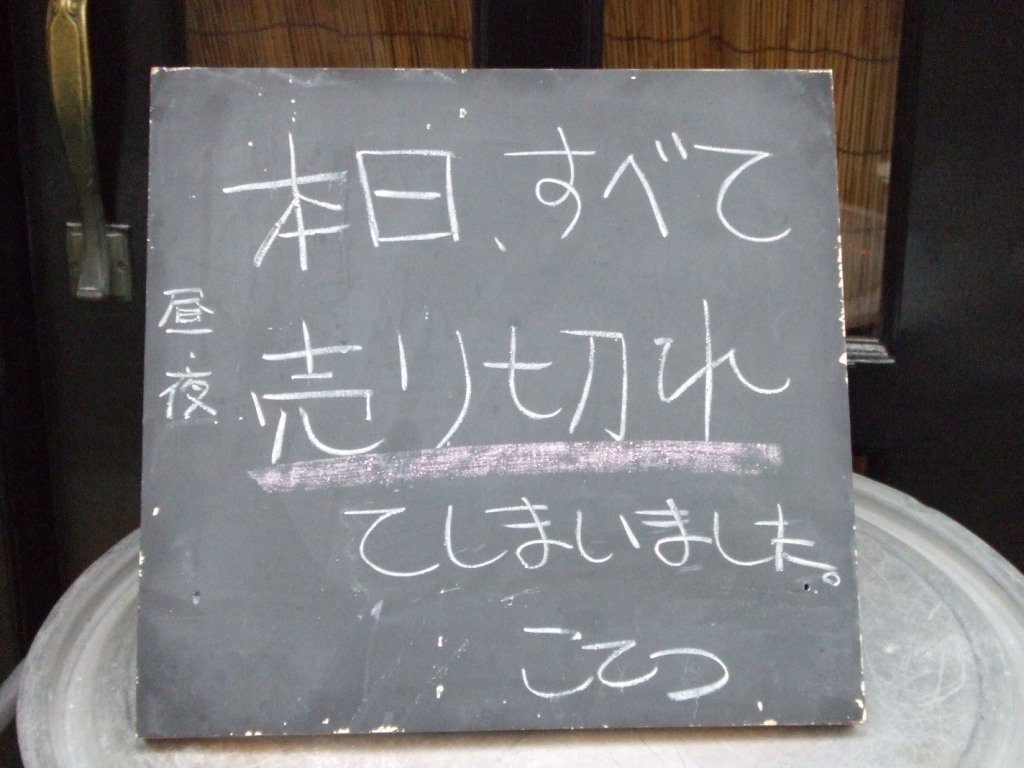 本日、すべて
昼
夜
売り切れ
てしまいました。
こてつ